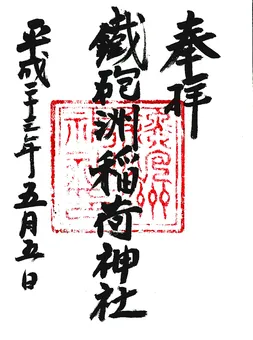 奉拝
鐵砲洲稲荷神社
平成二十三年五月五日